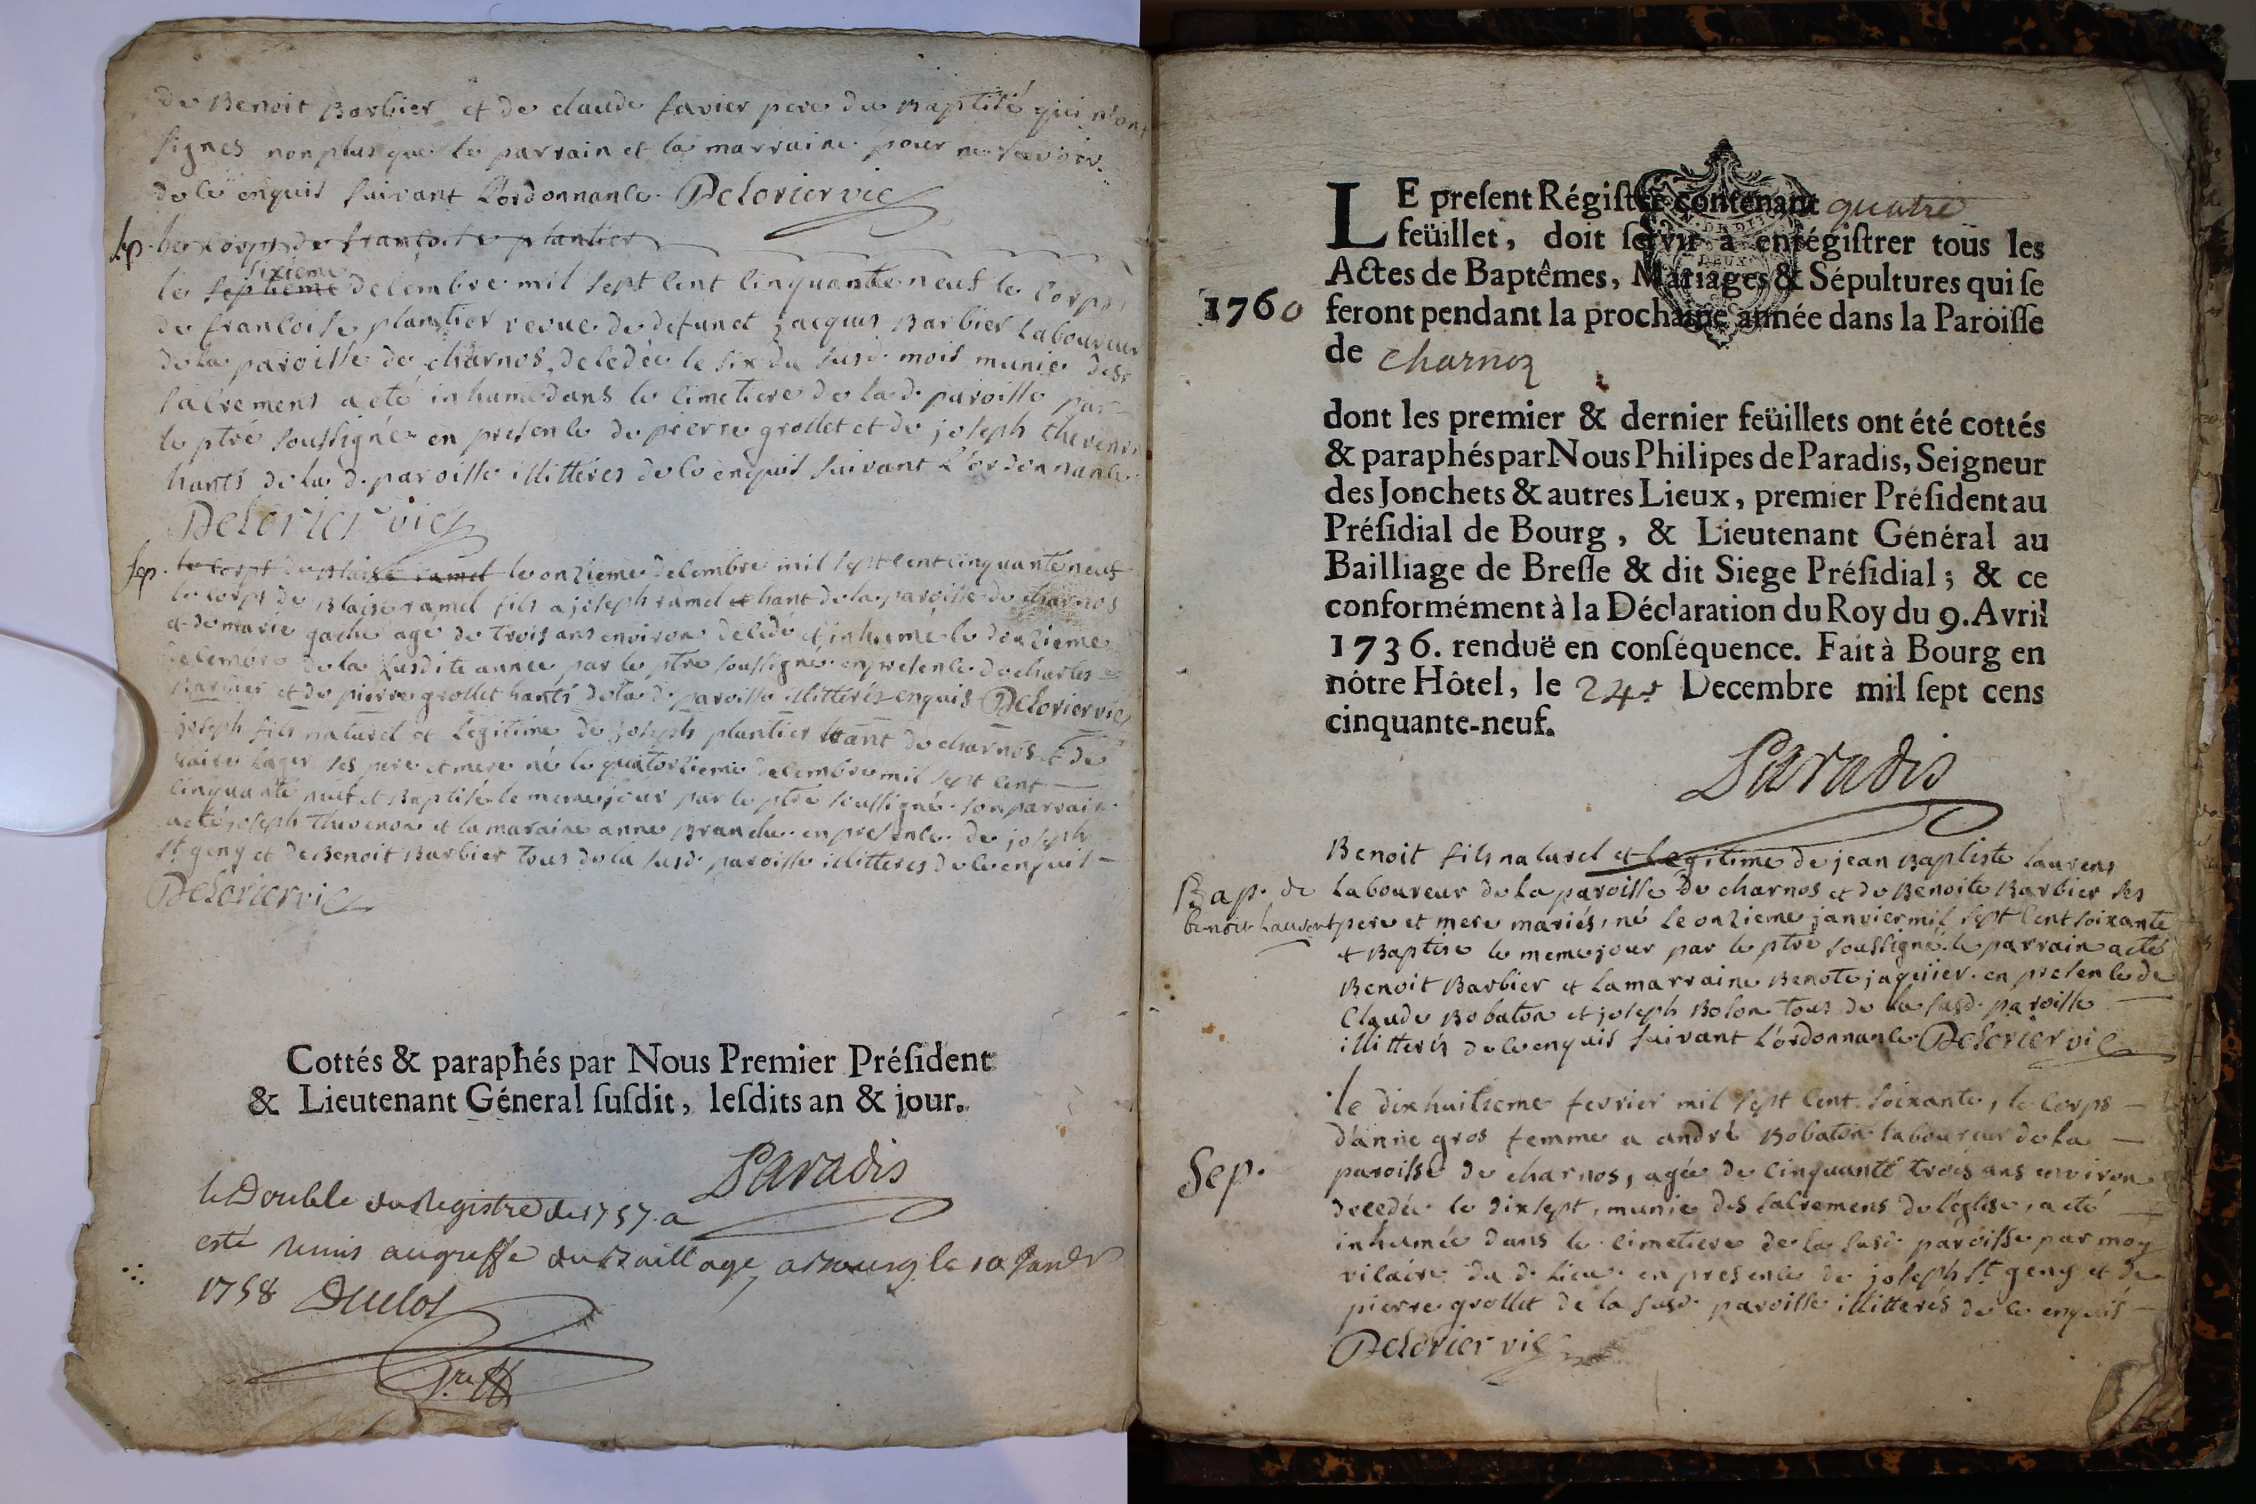 de Benoit Barbier et de claude favier pere du Baptisé qui n'ont
signes non plus que le parrain et la marraine pour ne scavoir
de ce enquis suivant l'ordonnance. Delorier vic
Sep. le corps de francoise plantier
sixieme
le septieme decembre mil sept cent cinquante neuf le corps
de francoise plantier veuve de defunct jacques Barbier laboureur
de la paroisse de charnos, decedée le six du susd. mois munie des
sacremens a eté inhumée dans le cimetiere de la d. paroisse par
le ptre soussigné en presence de pierre grollet et de joseph thevenon
hants de la d. paroisse illitterés de ce enquis suivant l'ordonnance
Delorier vic
Sep. le corps de Blaise ramel le onzieme decembre mil sept cent cinquante neuf
le corps de Blaise ramel fils a joseph ramel hant de la paroisse de charnos
et de marie gache agé de trois ans environ decedé et inhumé le douzieme
decembre de la susdite année par le ptre soussigné en presence de charles
Barbier et de pierre grollet hants de la d. paroisse illitterés enquis Delorier vic
joseph fils naturel et legitime de joseph plantier hant de charnos et de
ses pere et mere né le quatorzieme decembre mil sept cent
cinquante neuf et Baptisé le meme jour par le ptre soussigné son parrain
a eté joseph thevenon et la maraine anne Branche en presence de joseph
st. geny et de Benoit Barbier tous de la susd. paroisse illitteres de ce enquis
Delorier vic
Cottés & paraphés par Nous Premier Président
& Lieutenant Géneral susdit, lesdits an & jour.
Paradis
le Double du Registre de 1757. a
esté remis au greffe du Baillage a Bourg le 10 Janvr
1758 Duclos
LE present Régistre contenant quatre
feüillet, doit servir à enrégistrer tous les
Actes de Baptêmes, Mariages & Sépultures qui se
1760 feront pendant la prochaine année dans la Paroisse
de Charnoz
dont les premier & dernier feüillets ont été cottés
& paraphés par Nous Philipes de Paradis, Seigneur
des Jonchets & autres Lieux, premier Président au
Présidial de Bourg, & Lieutenant Général au
Bailliage de Bresse & dit Siege Présidial; & ce
conformément à la Déclaration du Roy du 9. Avril
1736. renduë en conséquence. Fait à Bourg en
nôtre Hôtel, le 24e Decembre mil sept cens
cinquante-neuf.
Paradis
Benoit fils naturel et legitime de jean Baptiste laurens
Bap. de laboureur de la paroisse de charnos et de Benoite Barbier ses
benoit laurent pere et mere mariés, né le onzieme janvier mil sept cent soixante
et Baptisé le meme jour par le ptre soussigné. le parrain a eté
Benoit Barbier et la marraine Benote jaquier. en presence de
Claude Bobaton et joseph Bolon tous de la susd. paroisse
illitterés de ce enquis suivant l'ordonnance Delorier vic
le dixhuitieme fevrier mil sept cent soixante, le corps
d'anne gros femme a andré Bobaton laboureur de la
Sep. paroisse de charnos, agée de cinquante trois ans environ
decedée le dixsept, munie des sacremens de l'eglise, a eté
inhumée dans le cimetiere de la susd. paroisse par moy
vicaire du d. lieu en presence de joseph st. geny et de
pierre grollet de la susd. paroisse illitterés de ce enquis
Delorier vic